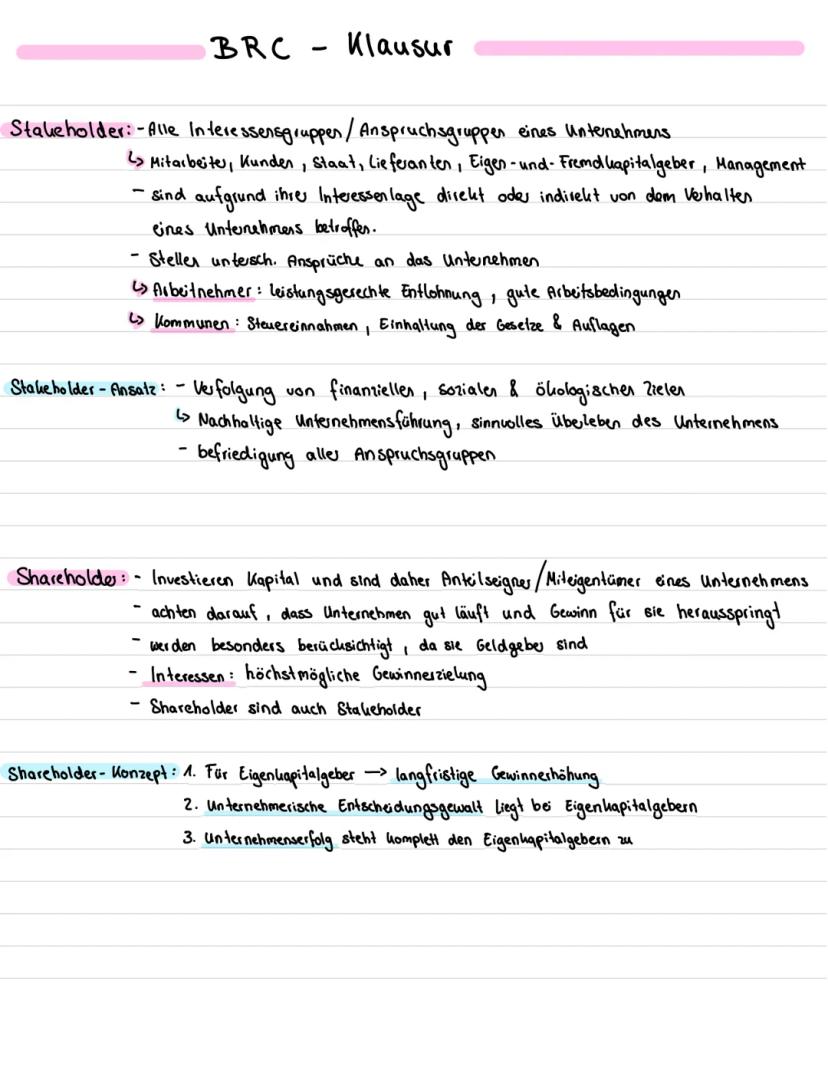 BRC - Klausur
Stakeholder: - Alle Interessensgruppen / Anspruchsgruppen eines Unternehmens
↳ Mitarbeiter, Kunden, Staat, Lieferanten, Eigen-und-Fremdkapitalgeber, Management
- sind aufgrund ihrer Interessenlage direkt oder indirekt von dem Verhalten
eines Unternehmens betroffen.
- Stellen untersch. Ansprüche an das Unternehmen
↳ Arbeitnehmer: leistungsgerechte Entlohnung, gute Arbeitsbedingungen
↳ Kommunen: Steuereinnahmen, Einhaltung der Gesetze & Auflagen
Stakeholder-Ansatz: - Verfolgung von finanziellen, sozialen & ökologischen Zielen
↳ Nachhaltige Unternehmensführung, sinnvolles Überleben des Unternehmens
- befriedigung aller Anspruchsgruppen
Shareholder: - Investieren Kapital und sind daher Anteilseigner/Miteigentümer eines Unternehmens
- achten darauf, dass Unternehmen gut läuft und Gewinn für sie herausspringt
- werden besonders berücksichtigt, da sie Geldgeber sind
- Interessen: höchstmögliche Gewinnerzielung
- Shareholder sind auch Stakeholder
Shareholder-Konzept: 1. Für Eigenkapitalgeber → langfristige Gewinnerhöhung
2. Unternehmerische Entscheidungsgewalt liegt bei Eigenkapitalgebern
3. Unternehmenserfolg steht komplett den Eigenkapitalgebern zu